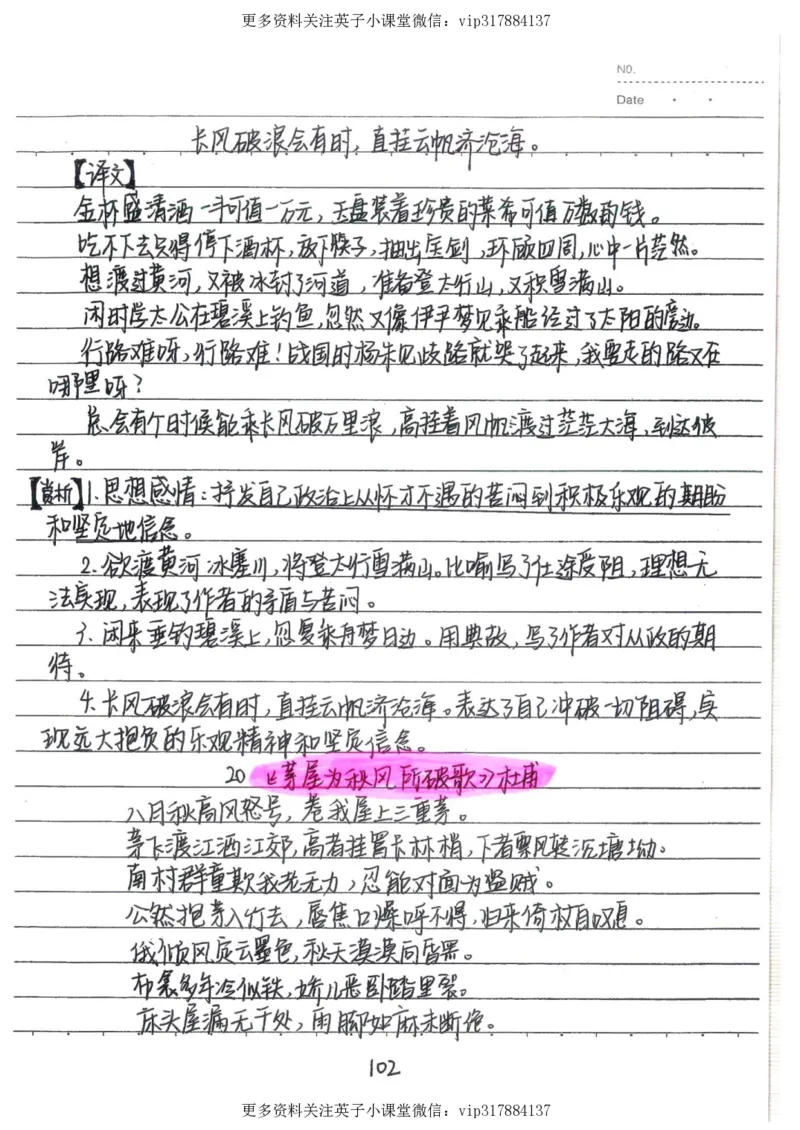 更多资料关注英子小课堂微信：vip317884137
NO.
Date
长风破浪会有时，直挂云帆济沧海。
【译文】
金杯盛清酒一斗可值一万元，玉盘装着珍贵的菜希可值万数的钱。
吃不下去只得停下酒杯，放下筷子，抽出宝剑，环顾四周，心中一片茫然。
想渡过黄河，又被冰封了河道，准备登太行山，又积雪满山。
闲时学太公在碧溪上钓鱼，忽然又像伊尹梦见乘船经过了太阳的旁边。
行路难呀，行路难！战国时杨朱见歧路就哭了起来，我要走的路又在
哪里呀？
总会有个时候能乘长风破万里浪，高挂着风帆渡过茫茫大海，到达彼
岸。
【赏析】1.思想感情：抒发自己政治上从怀才不遇的苦闷到积极乐观的期盼
和坚定地信念。
2.欲渡黄河冰塞川，将登太行雪满山。比喻写了仕途受阻，理想无
法实现，表现了作者的矛盾与苦闷。
3.闲来垂钓碧溪上，忽复乘舟梦日边。用典故，写了作者对从政的期
待。
4.长风破浪会有时，直挂云帆济沧海。表达了自己冲破一切阻碍，实
现远大抱负的乐观精神和坚定信念。
20《茅屋为秋风所破歌》杜甫
八月秋高风怒号，卷我屋上三重茅。
茅飞渡江洒江郊，高者挂罥长林梢，下者飘风转沉塘坳。
南村群童欺我老无力，忍能对面为盗贼。
公然抱茅入竹去，唇焦口燥呼不得，归来倚杖自叹息。
俄顷风定云墨色，秋天漠漠向昏黑。
布衾多年冷似铁，娇儿恶卧踏里裂。
床头屋漏无干处，雨脚如麻未断绝。
102
更多资料关注英子小课堂微信：vip317884137